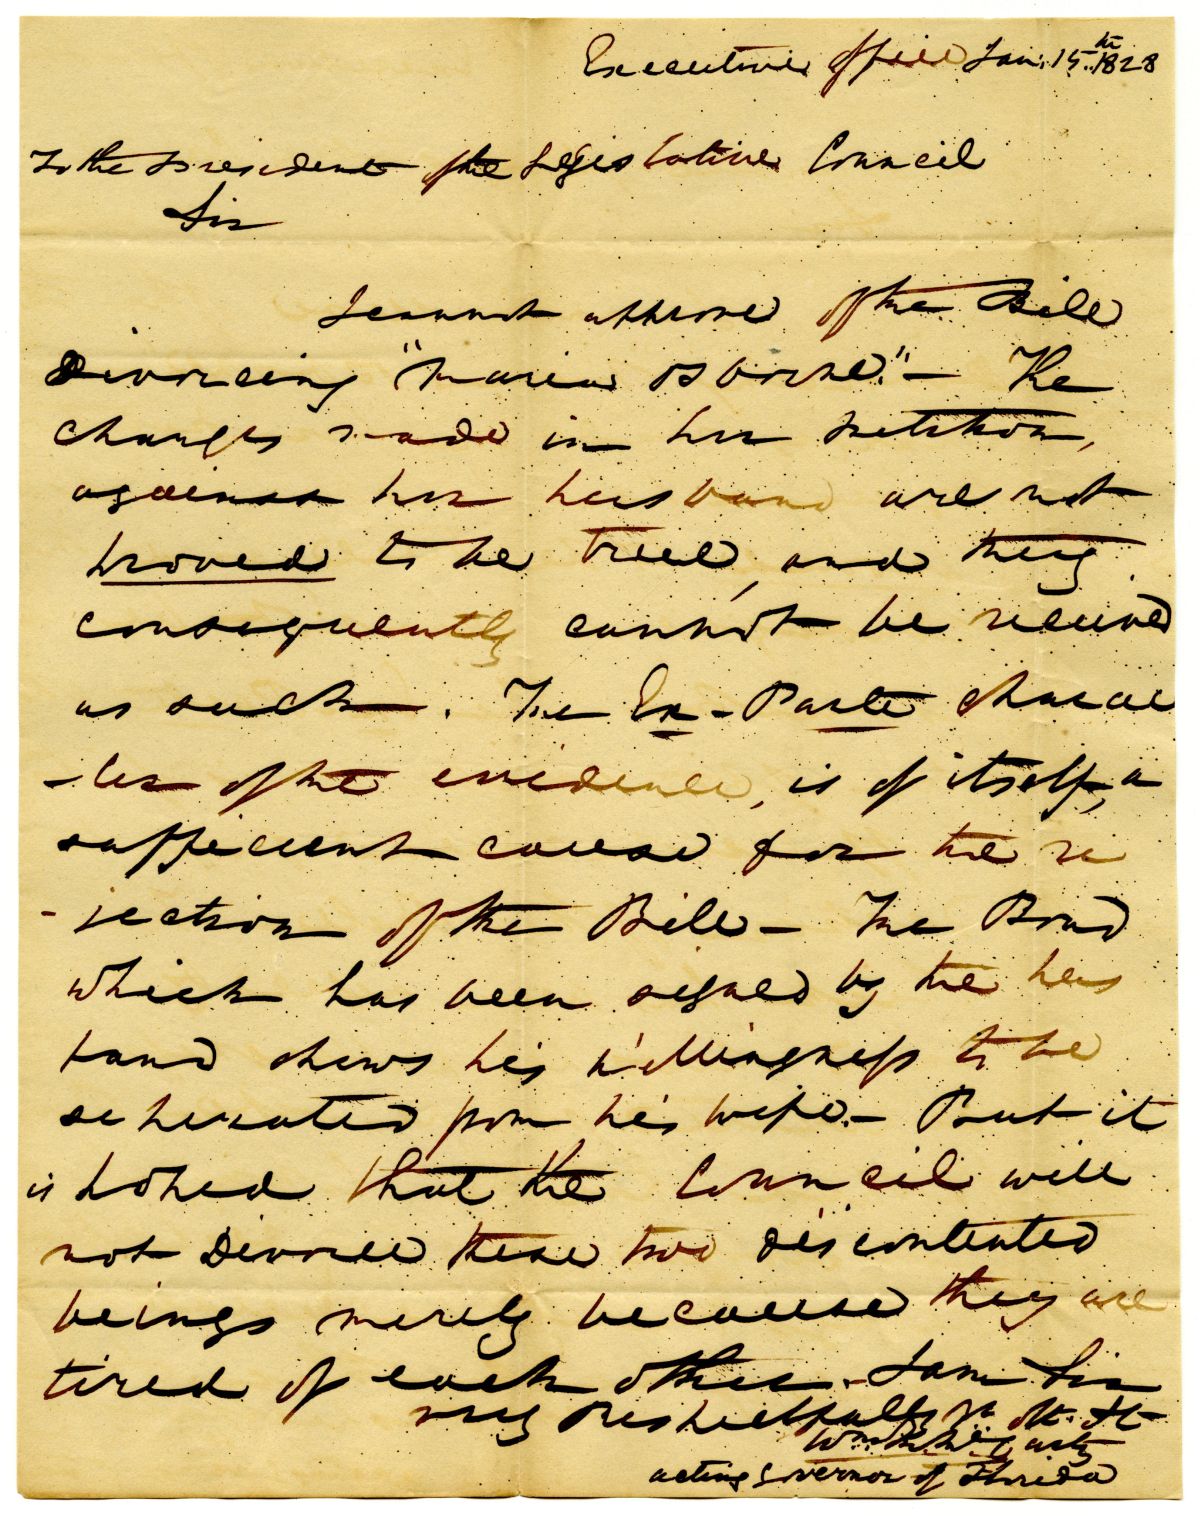 Executive office Jan. 15th 1828
To the President of the Legislative Council
Sir
I cannot approve of the Bill
Divorcing "Maria Osborne." – The
charges made in her petition,
against her husband are not
proved to be true, and they
consequently cannot be received
as such. The Ex-Parte charac
-ter of the evidence, is of itself, a
sufficient cause for the re
-jection of the Bill – The Bond
which has been signed by the hus
band shews his willingness to be
seperated from his wife. – But it
is hoped that the Council will
not Divorce these two discontented
beings merely because they are
tired of each other. – I am Sir
very respectfully yr. ob. St
Wm. M. McCarty
acting governor of Florida